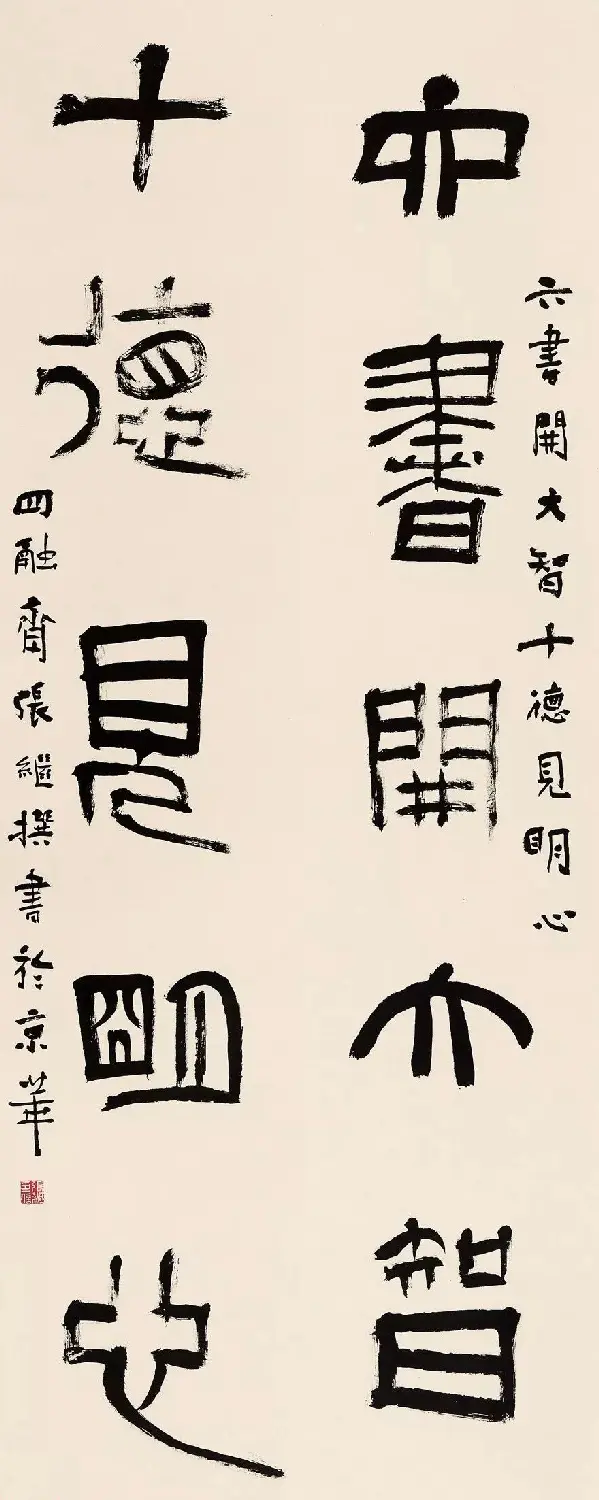 六書開大智
十德見明心
六書開大智十德見明心
四融齋張繼撰書於京華